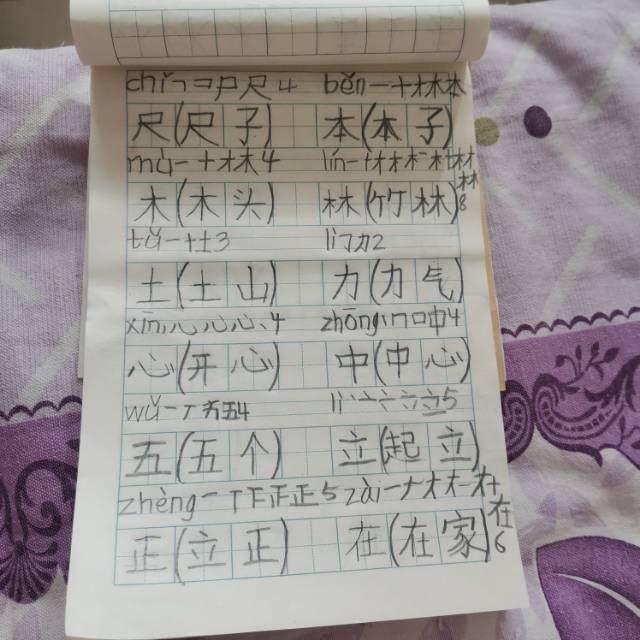 chǐ𠃌コ尸尺4 běn一十才木本
尺(尺子) 本(本子)
mù一十才木4 lín一十才木木村材林8
木(木头) 林(竹林)
tǔ一十土3 lìフ力2
土(土山) 力(力气)
xīn丶心心心4 zhōng丨口口中4
心(开心) 中(中心)
wǔ一丅五五4 lì丶亠亠立立5
五(五个) 立(起立)
zhèng一丅下正正5 zài一ナ才在在在6
正(立正) 在(在家)